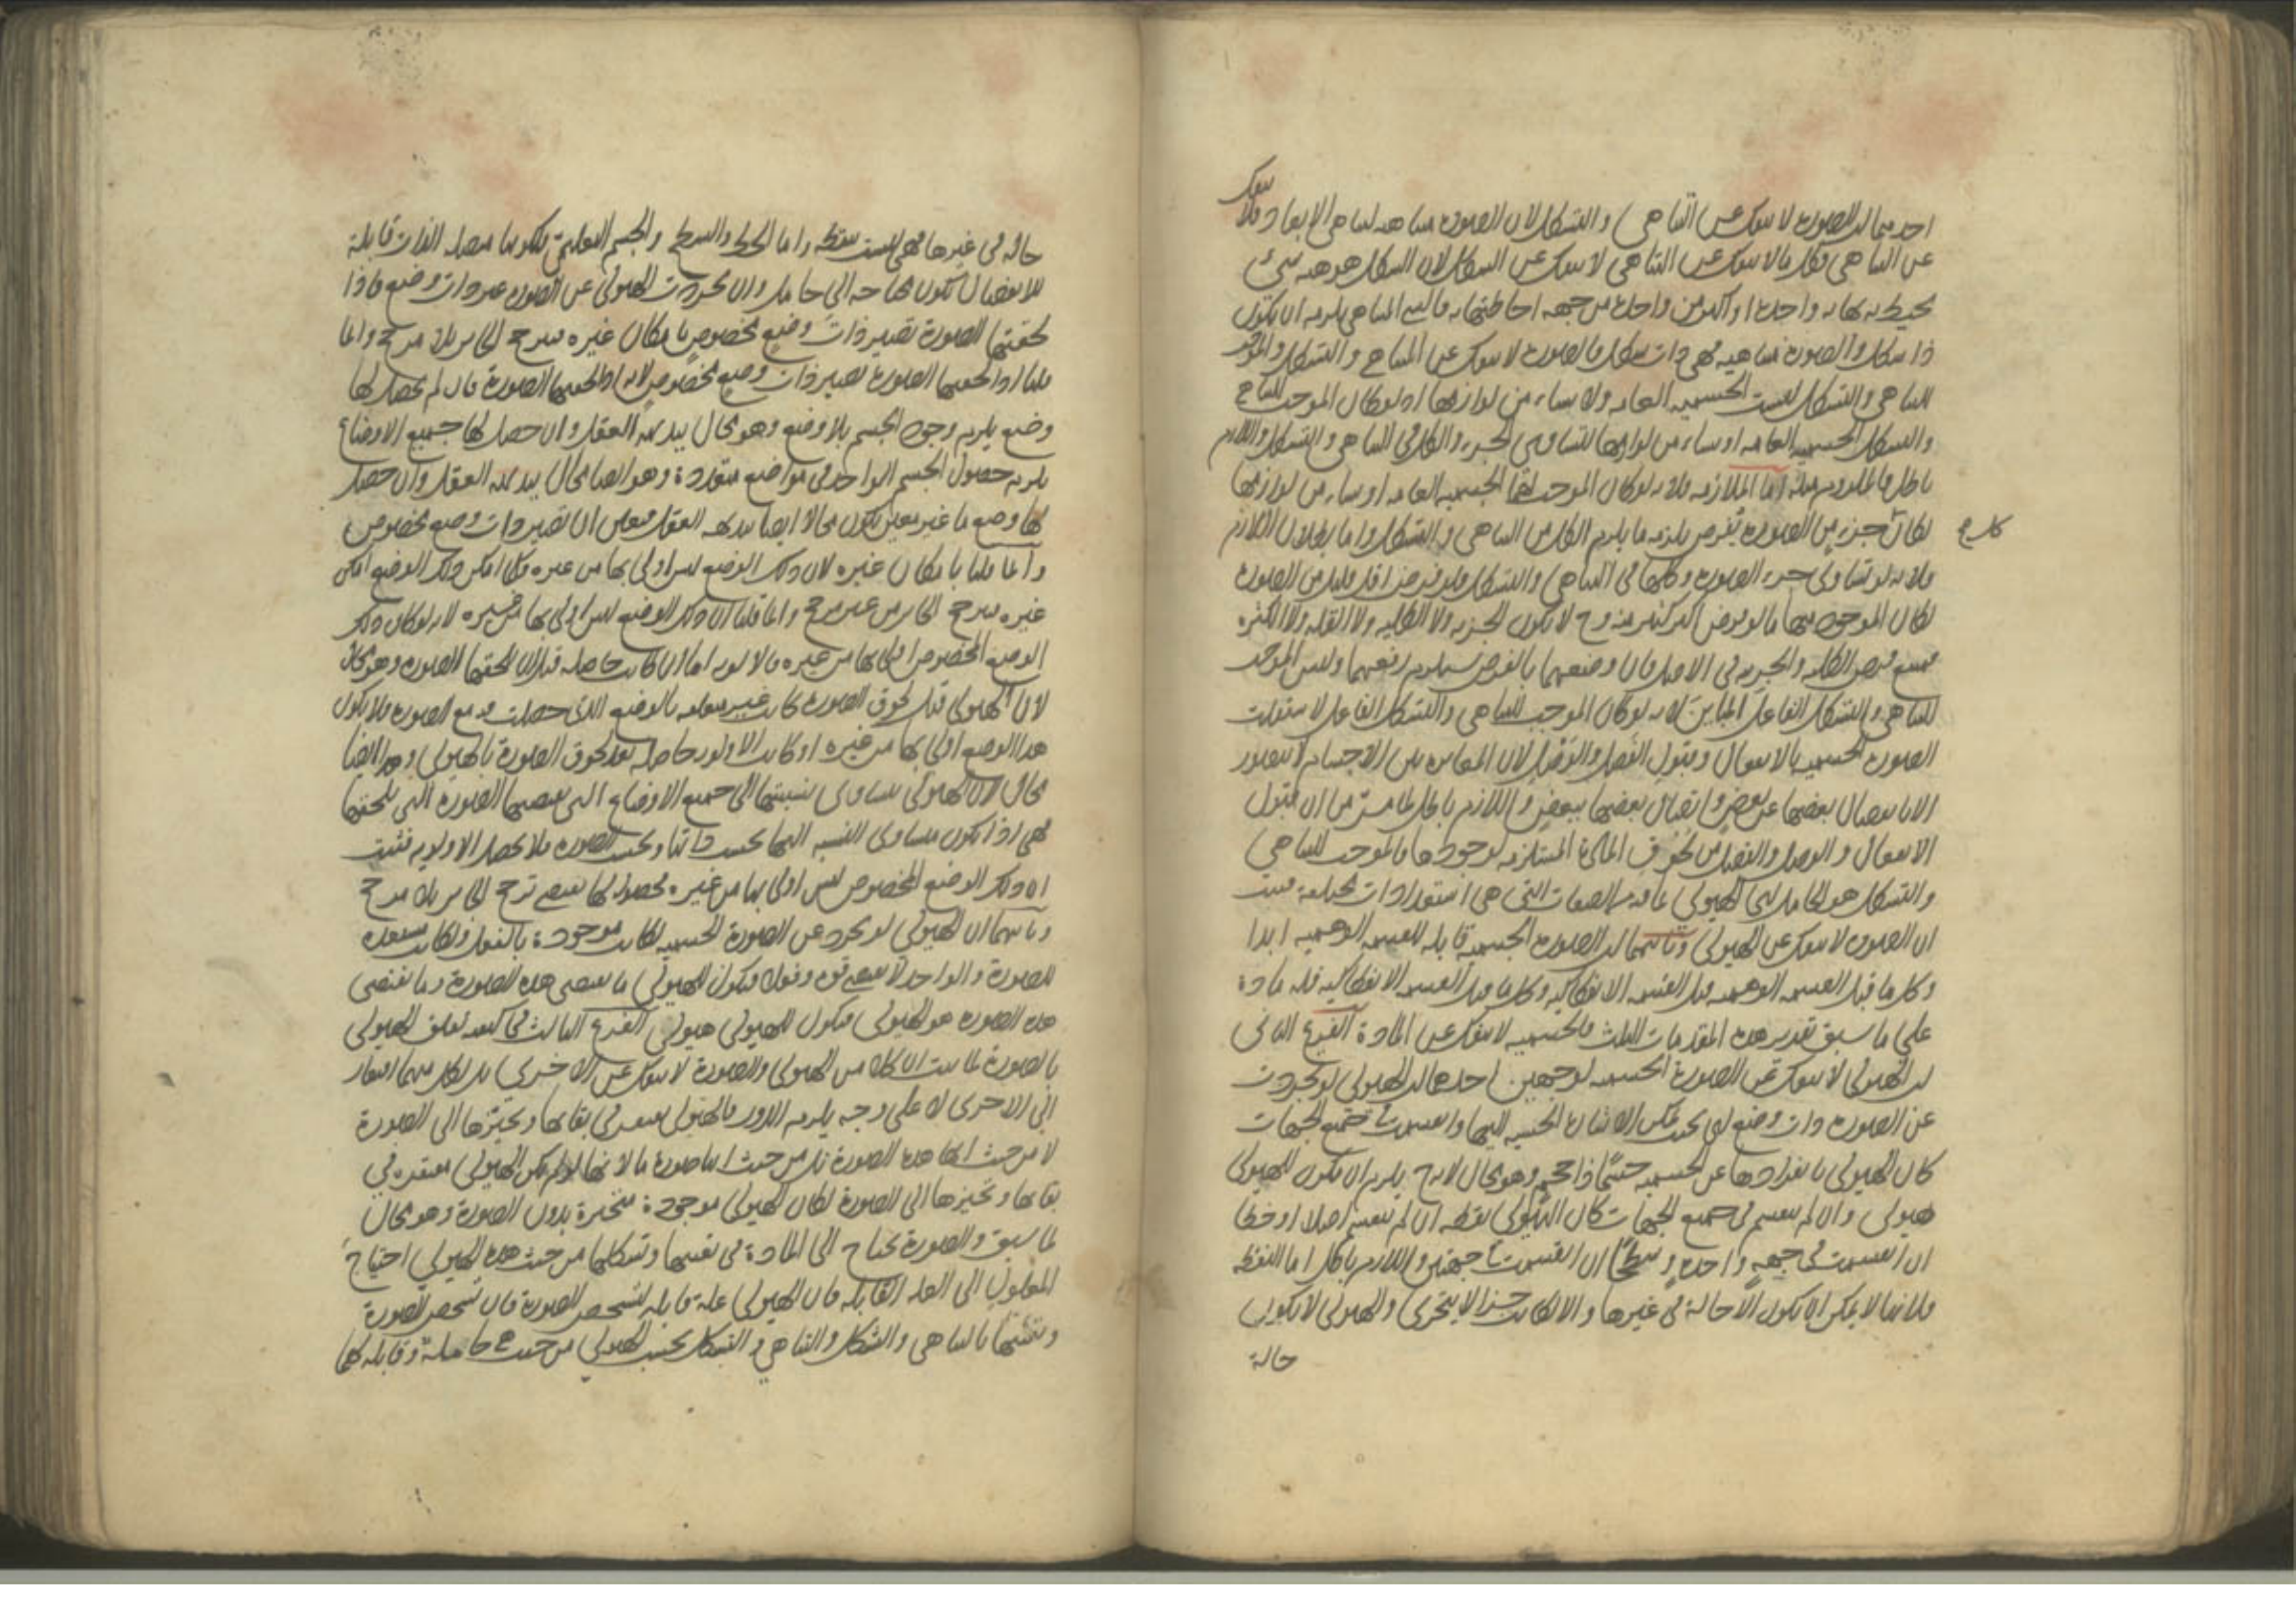 احدهما ان الصورة لا ينفك عن التناهي والتشكل لان الصورة متناهية لتناهي الابعاد فلا
ينفك
عن التناهي وكل ما لا ينفك عن التناهي لا ينفك عن الشكل لان الشكل هو هيئة شيء
يحيط به نهاية واحدة او اكثر من واحدة من جهة احاطتها به فالشيء المتناهي يلزمه ان يكون
ذا شكل والصورة متناهية فهي ذات شكل فالصورة لا ينفك عن التناهي والتشكل والموجب
للتناهي والتشكل ليست الجسمية العامة ولا شيء من لوازمها اذ لو كان الموجب للتناهي
والتشكل الجسمية العامة او شيء من لوازمها لتساوى الجزء والكل في التناهي والتشكل واللازم
باطل فالملزوم مثله اما الملازمة فلانه لو كان الموجب لهما الجسمية العامة او شيء من لوازمها
لكان جزء من الصورة يفرض يلزمه ما يلزم الكل من التناهي والتشكل واما بطلان اللازم
كل ح
فلانه لو تساوى جزء الصورة وكلها في التناهي والتشكل فلو فرض اقل قليل من الصورة
لكان الموجود منها ما لو فرض اكثر كثير منه وح لا يكون الجزئية ولا الكلية ولا القلة ولا الكثرة
فيمتنع فرض الكلية والجزئية في الاصل فان وضعهما بالفرض يستلزم رفعهما وليس الموجب
للتناهي والتشكل الفاعل المباين لانه لو كان الموجب للتناهي والتشكل الفاعل لاستقلت
الصورة الجسمية بالانفعال وبقبول الفصل والوصل لان المغايرة بين الاجسام لا يتصور
الا بانفصال بعضها عن بعض واتصال بعضها ببعض واللازم باطل لما مر من ان قبول
الانفعال والوصل والفصل من لحوق المادة المستلزمة لوجودها فالموجب للتناهي
والتشكل هو الحامل اي الهيولى بما فيه من الصفات التي هي استعدادات مختلفة فثبت
ان الصورة لا ينفك عن الهيولى وثانيهما ان الصورة الجسمية قابلة للقسمة الوهمية ابدا
وكل ما قبل القسمة الوهمية قبل القسمة الانفكاكية وكل ما قبل القسمة الانفكاكية فله مادة
على ما سبق تقرير هذه المقدمات الثلث فالجسمية لا ينفك عن المادة الفرع الثاني
ان الهيولى لا ينفك عن الصورة الجسمية لوجهين احدهما ان الهيولى لو تجردت
عن الصورة ذات وضع اي بحيث يمكن الاشارة الحسية اليها وانقسمت في جميع الجهات
كان الهيولى بانفرادها عن الجسمية جسما ذا حجم وهو محال لانه ح يلزم ان يكون للهيولى
هيولى وان لم ينقسم في جميع الجهات كان الهيولى نقطة ان لم ينقسم اصلا او خطا
ان انقسمت في جهة واحدة وسطحا ان انقسمت في جهتين واللازم باطل اما النقطة
فلانها لا يمكن ان يكون الا حالة في غيرها والا لكانت جزا لا يتجزى والهيولى لا يكون
حالة
حالة في غيرها فهي ليست نقطة واما الخط والسطح والجسم التعليمي فلكونها متصلة الذات قابلة
للانفصال يكون محتاجة الى حامل وان تجردت الهيولى عن الصورة غير ذات وضع فاذا
لحقتها الصورة تصير ذات وضع مخصوص بامكان غيره فيترجح الجايز بلا مرجح وانما
قلنا اذا لحقتها الصورة تصير ذات وضع مخصوص لانه اذا لحقتها الصورة فان لم يحصل لها
وضع يلزم وجود الجسم بلا وضع وهو محال ببديهة العقل وان حصل لها جميع الاوضاع
يلزم حصول الجسم الواحد في مواضع متعددة وهو ايضا محال ببديهة العقل وان حصل
لها وضع ما غير معين يكون محالا ايضا ببديهة العقل فتعين ان تصير ذات وضع مخصوص
وانما قلنا بامكان غيره لان ذلك الوضع ليس اولى بها من غيره فكما امكن ذلك الوضع امكن
غيره فيترجح الجايز من غير مرجح وانما قلنا ان ذلك الوضع ليس اولى بها من غيره لانه لو كان ذلك
الوضع المخصوص اولى بها من غيره فالاولوية اما ان كانت حاصلة قبل ان يلحقها الصورة وهو محال
لان الهيولى قبل لحوق الصورة كانت غير متعلقة بالوضع الذي حصلت فيه مع الصورة فلا يكون
هذا الوضع اولى بها من غيره او كانت الاولوية حاصلة بعد لحوق الصورة بالهيولى وهو ايضا
محال لان الهيولى يتساوى نسبتها الى جميع الاوضاع التي يقتضيها الصورة التي يلحقها
فهي اذا يكون متساوي النسبة اليها بحسب ذاتها وبحسب الصورة فلا يحصل الاولوية فثبت
ان ذلك الوضع المخصوص ليس اولى بها من غيره فحصوله لها يقتضي ترجح الجايز بلا مرجح
وثانيهما ان الهيولى لو تجرد عن الصورة الجسمية لكانت موجودة بالفعل ولكانت مستعدة
للصورة والواحد لا يقتضي قوة وفعلا فيكون للهيولى ما يقتضي هذه الصورة وما يقتضي
هذه الصورة هو الهيولى فيكون للهيولى هيولى الفرع الثالث في كيفية تعلق الهيولى
بالصورة لما ثبت ان كلا من الهيولى والصورة لا ينفك عن الاخرى بل لكل منهما افتقار
الى الاخرى لا على وجه يلزم الدور فالهيولى يفتقر في بقائها وتحيزها الى الصورة
لا من حيث انها هذه الصورة بل من حيث انها صورة ما لانها لو لم يكن الهيولى مفتقرة في
بقائها وتحيزها الى الصورة لكان الهيولى موجودة متحيزة بدون الصورة وهو محال
لما سبق والصورة يحتاج الى المادة في تعينها وتشكلها من حيث هذه الهيولى احتياج
المعلول الى العلة القابلة فان الهيولى علة قابلة لتشخص الصورة فان تشخص الصورة
وتعينها بالتناهي والتشكل والتناهي والتشكل بحسب الهيولى من حيث هي حاملة وقابلة لهما